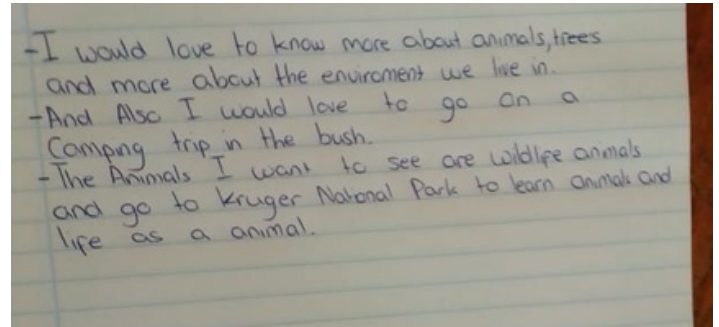 -I would love to know more about animals, trees
and more about the enviroment we live in.
-And Also I would love to go on a
Camping trip in the bush.
-The Animals I want to see are wildlife animals
and go to Kruger National Park to learn animals and
life as a animal.